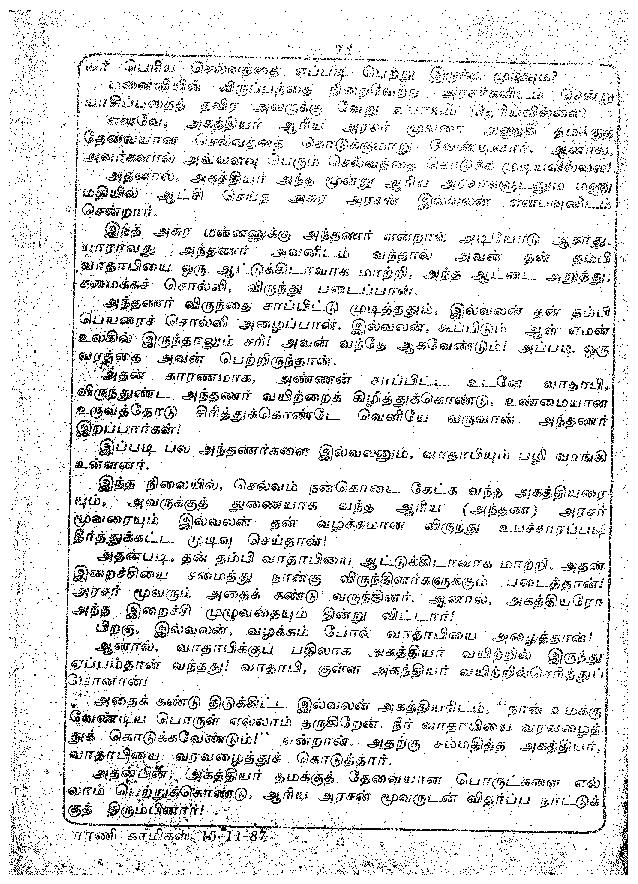 71
பெரிய செல்வத்தை எப்படி பெற்று இருக்க முடியும்?
மனைவியின் விருப்பத்தை நிறைவேற்ற அரசர்களிடம் சென்று
யாசிப்பதைத் தவிர அவருக்கு வேறு உபாயம் தெரியவில்லை!
எனவே, அகத்தியர் ஆரிய அரசர் மூவரை அணுகி தமக்குத்
தேவையான செல்வத்தை கொடுக்குமாறு வேண்டினார். ஆனால்,
அவர்களால் அவ்வளவு பெரும் செல்வத்தை கொடுக்க முடியவில்லை!
அதனால், அகத்தியர் அந்த மூன்று ஆரிய அரசர்களுடனும் மணு
மதியில் ஆட்சி செய்த அசுர அரசன் இல்வலன் என்பவனிடம்
சென்றார்.
இந்த அசுர மன்னனுக்கு அந்தணர் என்றால் அடியோடு ஆகாது.
யாராவது அந்தணர் அவனிடம் வந்தால் அவன் தன் தம்பி
வாதாபியை ஒரு ஆட்டுக்கிடாவாக மாற்றி, அந்த ஆட்டை அறுத்து,
சமைக்கச் சொல்லி, விருந்து படைப்பான்.
அந்தணர் விருந்தை சாப்பிட்டு முடித்ததும், இல்வலன் தன் தம்பி
பெயரைச் சொல்லி அழைப்பான். இல்வலன், கூப்பிடும் ஆள் எமன்
உலகில் இருந்தாலும் சரி! அவன் வந்தே ஆகவேண்டும்! அப்படி ஒரு
வரத்தை அவன் பெற்றிருந்தான்.
அதன் காரணமாக, அண்ணன் கூப்பிட்ட உடனே வாதாபி,
விருந்துண்ட அந்தணர் வயிற்றைக் கிழித்துக்கொண்டு, உண்மையான
உருவத்தோடு சிரித்துக்கொண்டே வெளியே வருவான். அந்தணர்
இறப்பார்கள்!
இப்படி பல அந்தணர்களை இல்வலனும், வாதாபியும் பழி வாங்கி
உள்ளனர்.
இந்த நிலையில், செல்வம் நன்கொடை கேட்க வந்த அகத்தியரை
யும், அவருக்குத் துணையாக வந்த ஆரிய (அந்தண) அரசர்
மூவரையும் இல்வலன் தன் வழக்கமான விருந்து உபச்சாரப்படி
தீர்த்துக்கட்ட முடிவு செய்தான்!
அதன்படி, தன் தம்பி வாதாபியை ஆட்டுக்கிடாவாக மாற்றி, அதன்
இறைச்சியை சமைத்து நான்கு விருந்தினர்களுக்கும் படைத்தான்!
அரசர் மூவரும் அதைக் கண்டு வருந்தினர். ஆனால், அகத்தியரோ
அந்த இறைச்சி முழுவதையும் தின்று விட்டார்!
பிறகு, இல்வலன், வழக்கம் போல் வாதாபியை அழைத்தான்!
ஆனால், வாதாபிக்குப் பதிலாக அகத்தியர் வயிற்றில் இருந்து
ஏப்பம்தான் வந்தது! வாதாபி, குள்ள அகத்தியர் வயிற்றில் செரித்துப்
போனான்!
அதைக் கண்டு திடுக்கிட்ட இல்வலன் அகத்தியரிடம், "நான் உமக்கு
வேண்டிய பொருள் எல்லாம் தருகிறேன். நீர் வாதாபியை வரவழைத்
துக் கொடுக்கவேண்டும்!" என்றான். அதற்கு சம்மதித்த அகத்தியர்,
வாதாபியை வரவழைத்துக் கொடுத்தார்.
அதன்பின், அகத்தியர் தமக்குத் தேவையான பொருட்களை எல்
லாம் பெற்றுக்கொண்டு, ஆரிய அரசன் மூவருடன் விதர்ப்ப நாட்டுக்
குத் திரும்பினார்!
ராணி காமிக்ஸ் 15-11-87